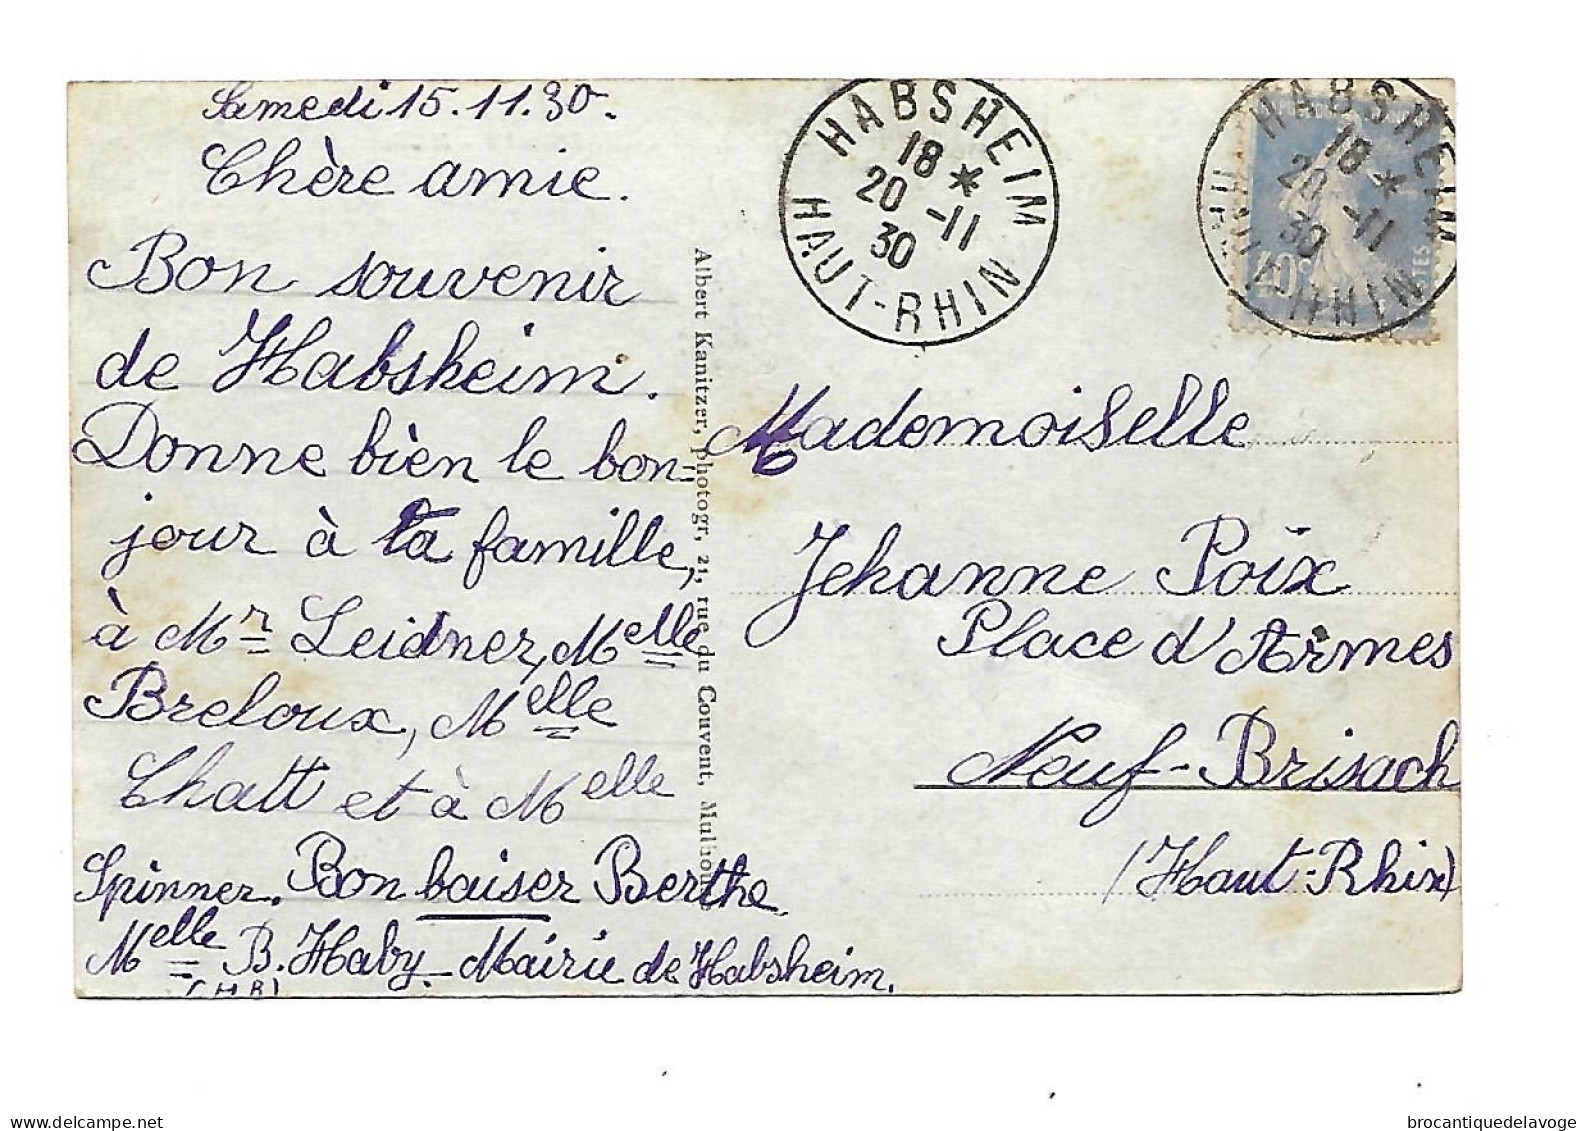 Samedi 15.11.30.
Chère amie.
Bon souvenir
de Habsheim.
Donne bien le bon-
jour à ta famille,
à Mr Leidner, Melle
Breloux, Melle
Chatt et à Melle
Spinner. Bon baiser Berthe.
Melle B. Haby - Mairie de Habsheim.
(H R)
Albert Kanitzer, photogr, 21, rue du Couvent, Mulhouse
HABSHEIM
18 *
20 -11
30
HAUT-RHIN
HABSHEIM
18 *
20 -11
30
HAUT-RHIN
40c
POSTES
Mademoiselle
Jehanne Poix
Place d'Armes
Neuf-Brisach
(Haut-Rhin)
delcampe.net
brocantiquedelavoge